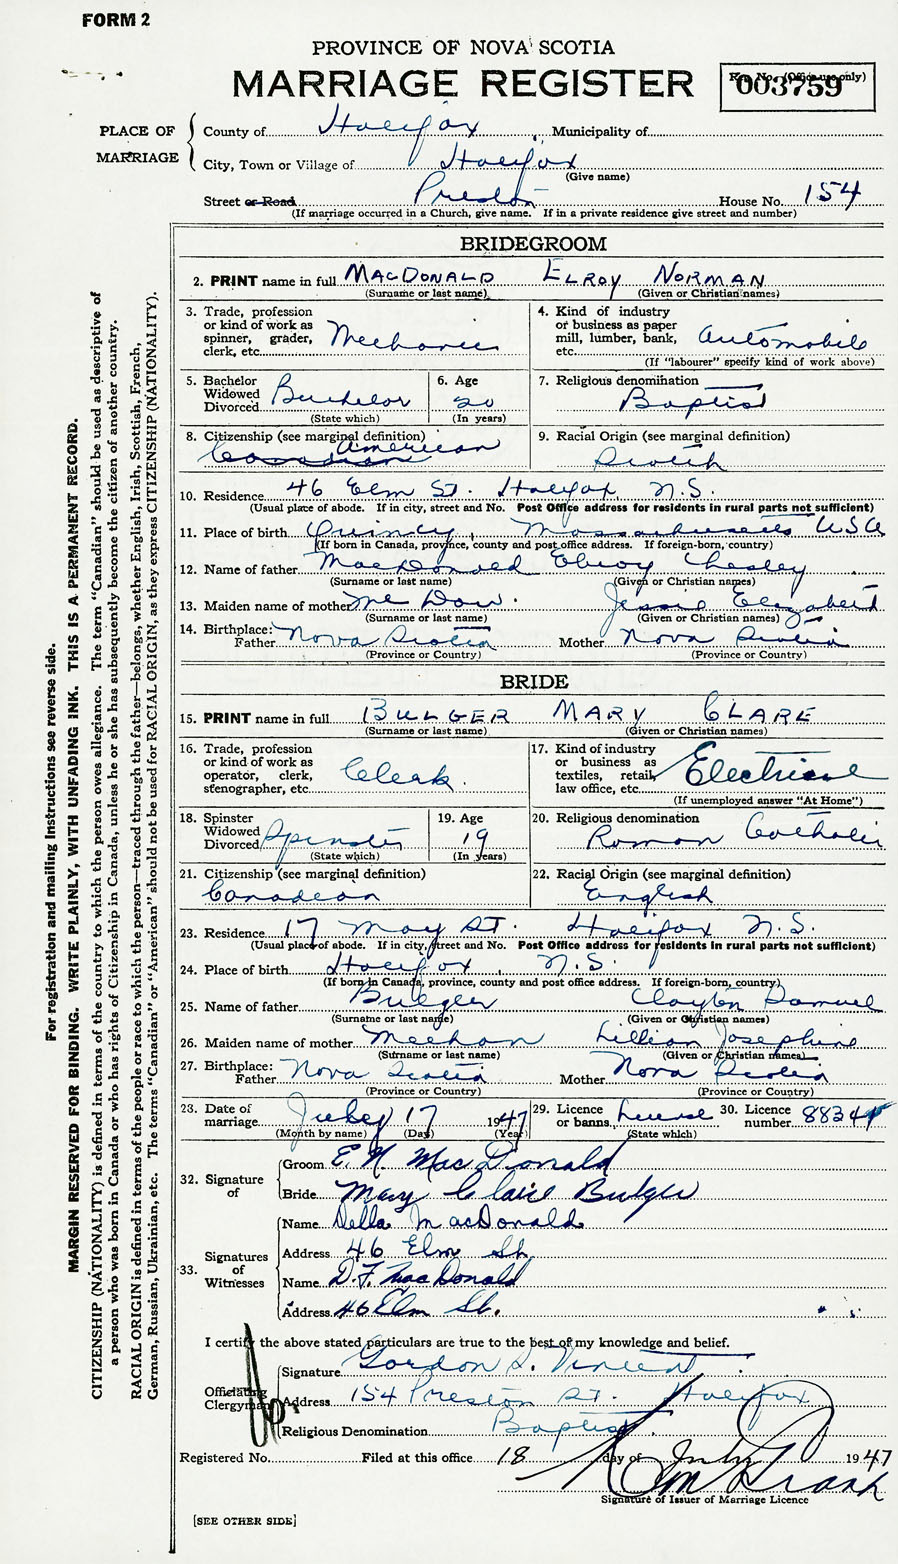 FORM 2
PROVINCE OF NOVA SCOTIA
MARRIAGE REGISTER
Reg. No. (Office use only)
003759
PLACE OF MARRIAGE
County of Halifax Municipality of
City, Town or Village of Halifax
(Give name)
Street or Road Preston House No. 154
(If marriage occurred in a Church, give name. If in a private residence give street and number)
BRIDEGROOM
2. PRINT name in full MACDONALD ELROY NORMAN
(Surname or last name) (Given or Christian names)
3. Trade, profession or kind of work as spinner, grader, clerk, etc. Mechanic
4. Kind of industry or business as paper mill, lumber, bank, etc. Automobile
(If "labourer" specify kind of work above)
5. Bachelor Widowed Divorced Bachelor
(State which)
6. Age 20
(In years)
7. Religious denomination
Baptist
8. Citizenship (see marginal definition)
Canadian American
9. Racial Origin (see marginal definition)
Scotch
10. Residence 46 Elm St. Halifax, N.S.
(Usual place of abode. If in city, street and No. Post Office address for residents in rural parts not sufficient)
11. Place of birth Quincy, Massachusetts USA
(If born in Canada, province, county and post office address. If foreign-born, country)
12. Name of father MacDonald Elroy Chesley
(Surname or last name) (Given or Christian names)
13. Maiden name of mother Mc Dow. Jessie Elizabeth
(Surname or last name) (Given or Christian names)
14. Birthplace: Father Nova Scotia Mother Nova Scotia
(Province or Country) (Province or Country)
BRIDE
15. PRINT name in full BULGER MARY CLARE
(Surname or last name) (Given or Christian names)
16. Trade, profession or kind of work as operator, clerk, stenographer, etc. Clerk.
17. Kind of industry or business as textiles, retail, law office, etc. Electrical
(If unemployed answer "At Home")
18. Spinster Widowed Divorced Spinster
(State which)
19. Age 19
(In years)
20. Religious denomination
Roman Catholic
21. Citizenship (see marginal definition)
Canadian
22. Racial Origin (see marginal definition)
English
23. Residence 17 May St. Halifax N.S.
(Usual place of abode. If in city, street and No. Post Office address for residents in rural parts not sufficient)
24. Place of birth Halifax, N.S.
(If born in Canada, province, county and post office address. If foreign-born, country)
25. Name of father Bulger Clayton Samuel
(Surname or last name) (Given or Christian names)
26. Maiden name of mother Meehan Lillian Josephine
(Surname or last name) (Given or Christian names)
27. Birthplace: Father Nova Scotia Mother Nova Scotia
(Province or Country) (Province or Country)
23. Date of marriage July 17 1947
(Month by name) (Day) (Year)
29. Licence or banns license
(State which)
30. Licence number
32. Signature of
Groom E. N. MacDonald
Bride Mary Claire Bulger
33. Signatures of Witnesses
Name Della MacDonald
Address 46 Elm St.
Name D.F. MacDonald
Address 46 Elm St.
I certify the above stated particulars are true to the best of my knowledge and belief.
Officiating Clergyman
Signature Gordon L. Vincent
Address 154 Preston St. Halifax
Religious Denomination Baptist
Registered No. Filed at this office 18 day of July 1947
Signature of Issuer of Marriage Licence
[SEE OTHER SIDE]
For registration and mailing instructions see reverse side.
MARGIN RESERVED FOR BINDING. WRITE PLAINLY, WITH UNFADING INK. THIS IS A PERMANENT RECORD.
CITIZENSHIP (NATIONALITY) is defined in terms of the country to which the person owes allegiance. The term "Canadian" should be used as descriptive of
a person who was born in Canada or who has rights of Citizenship in Canada, unless he or she has subsequently become the citizen of another country.
RACIAL ORIGIN is defined in terms of the people or race to which the person—traced through the father—belongs, whether English, Irish, Scottish, French,
German, Russian, Ukrainian, etc. The terms "Canadian" or "American" should not be used for RACIAL ORIGIN, as they express CITIZENSHIP (NATIONALITY).